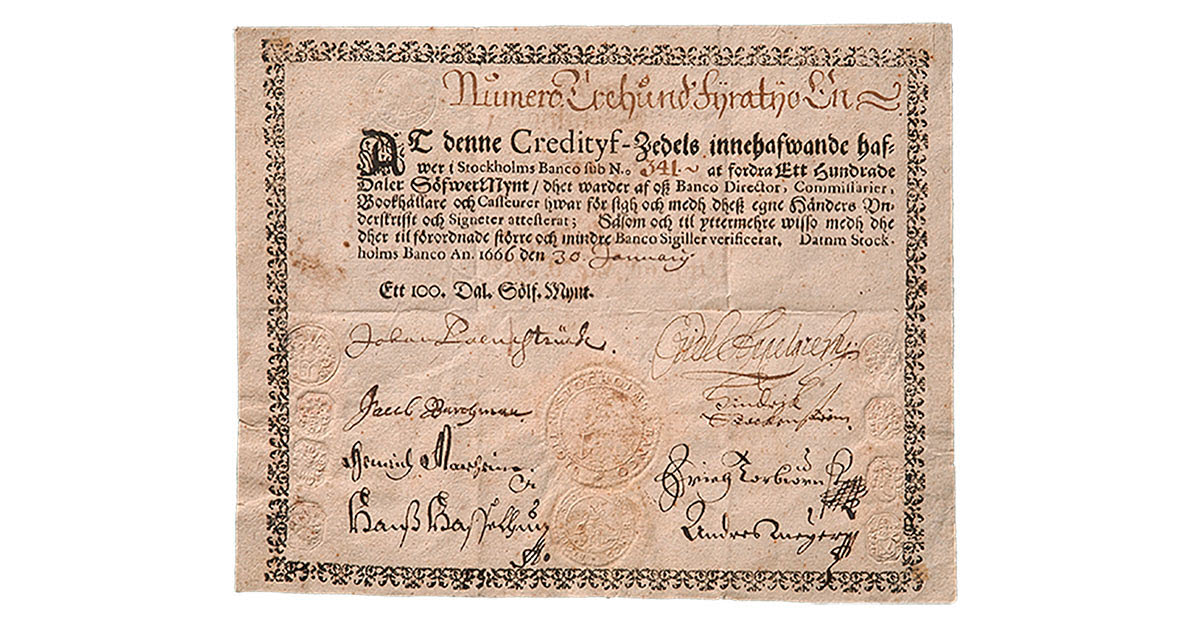 Numero Trehund Fyratyo En
AT denne Credityf-Zedels innehafwande haf-
wer i Stockholms Banco sub N.o 341. at fordra Ett Hundrade
Daler SölfwerMynt / dhet warder af oß Banco Director, Commissarier,
Bookhållare och Casseurer hwar för sigh och medh dheß egne Händers Vn-
derskrifft och Signeter attesterat; Såsom och til yttermehre wisso medh dhe
dher til förordnade större och mindre Banco Sigiller verificerat. Datum Stock-
holms Banco An. 1666 den 30. January
Ett 100. Dal. Sölf. Mynt.
Johan Palmstruch.
Jacob Barchman
Hindrich
Henrich
Hanß Hasselhun
Andres meyer